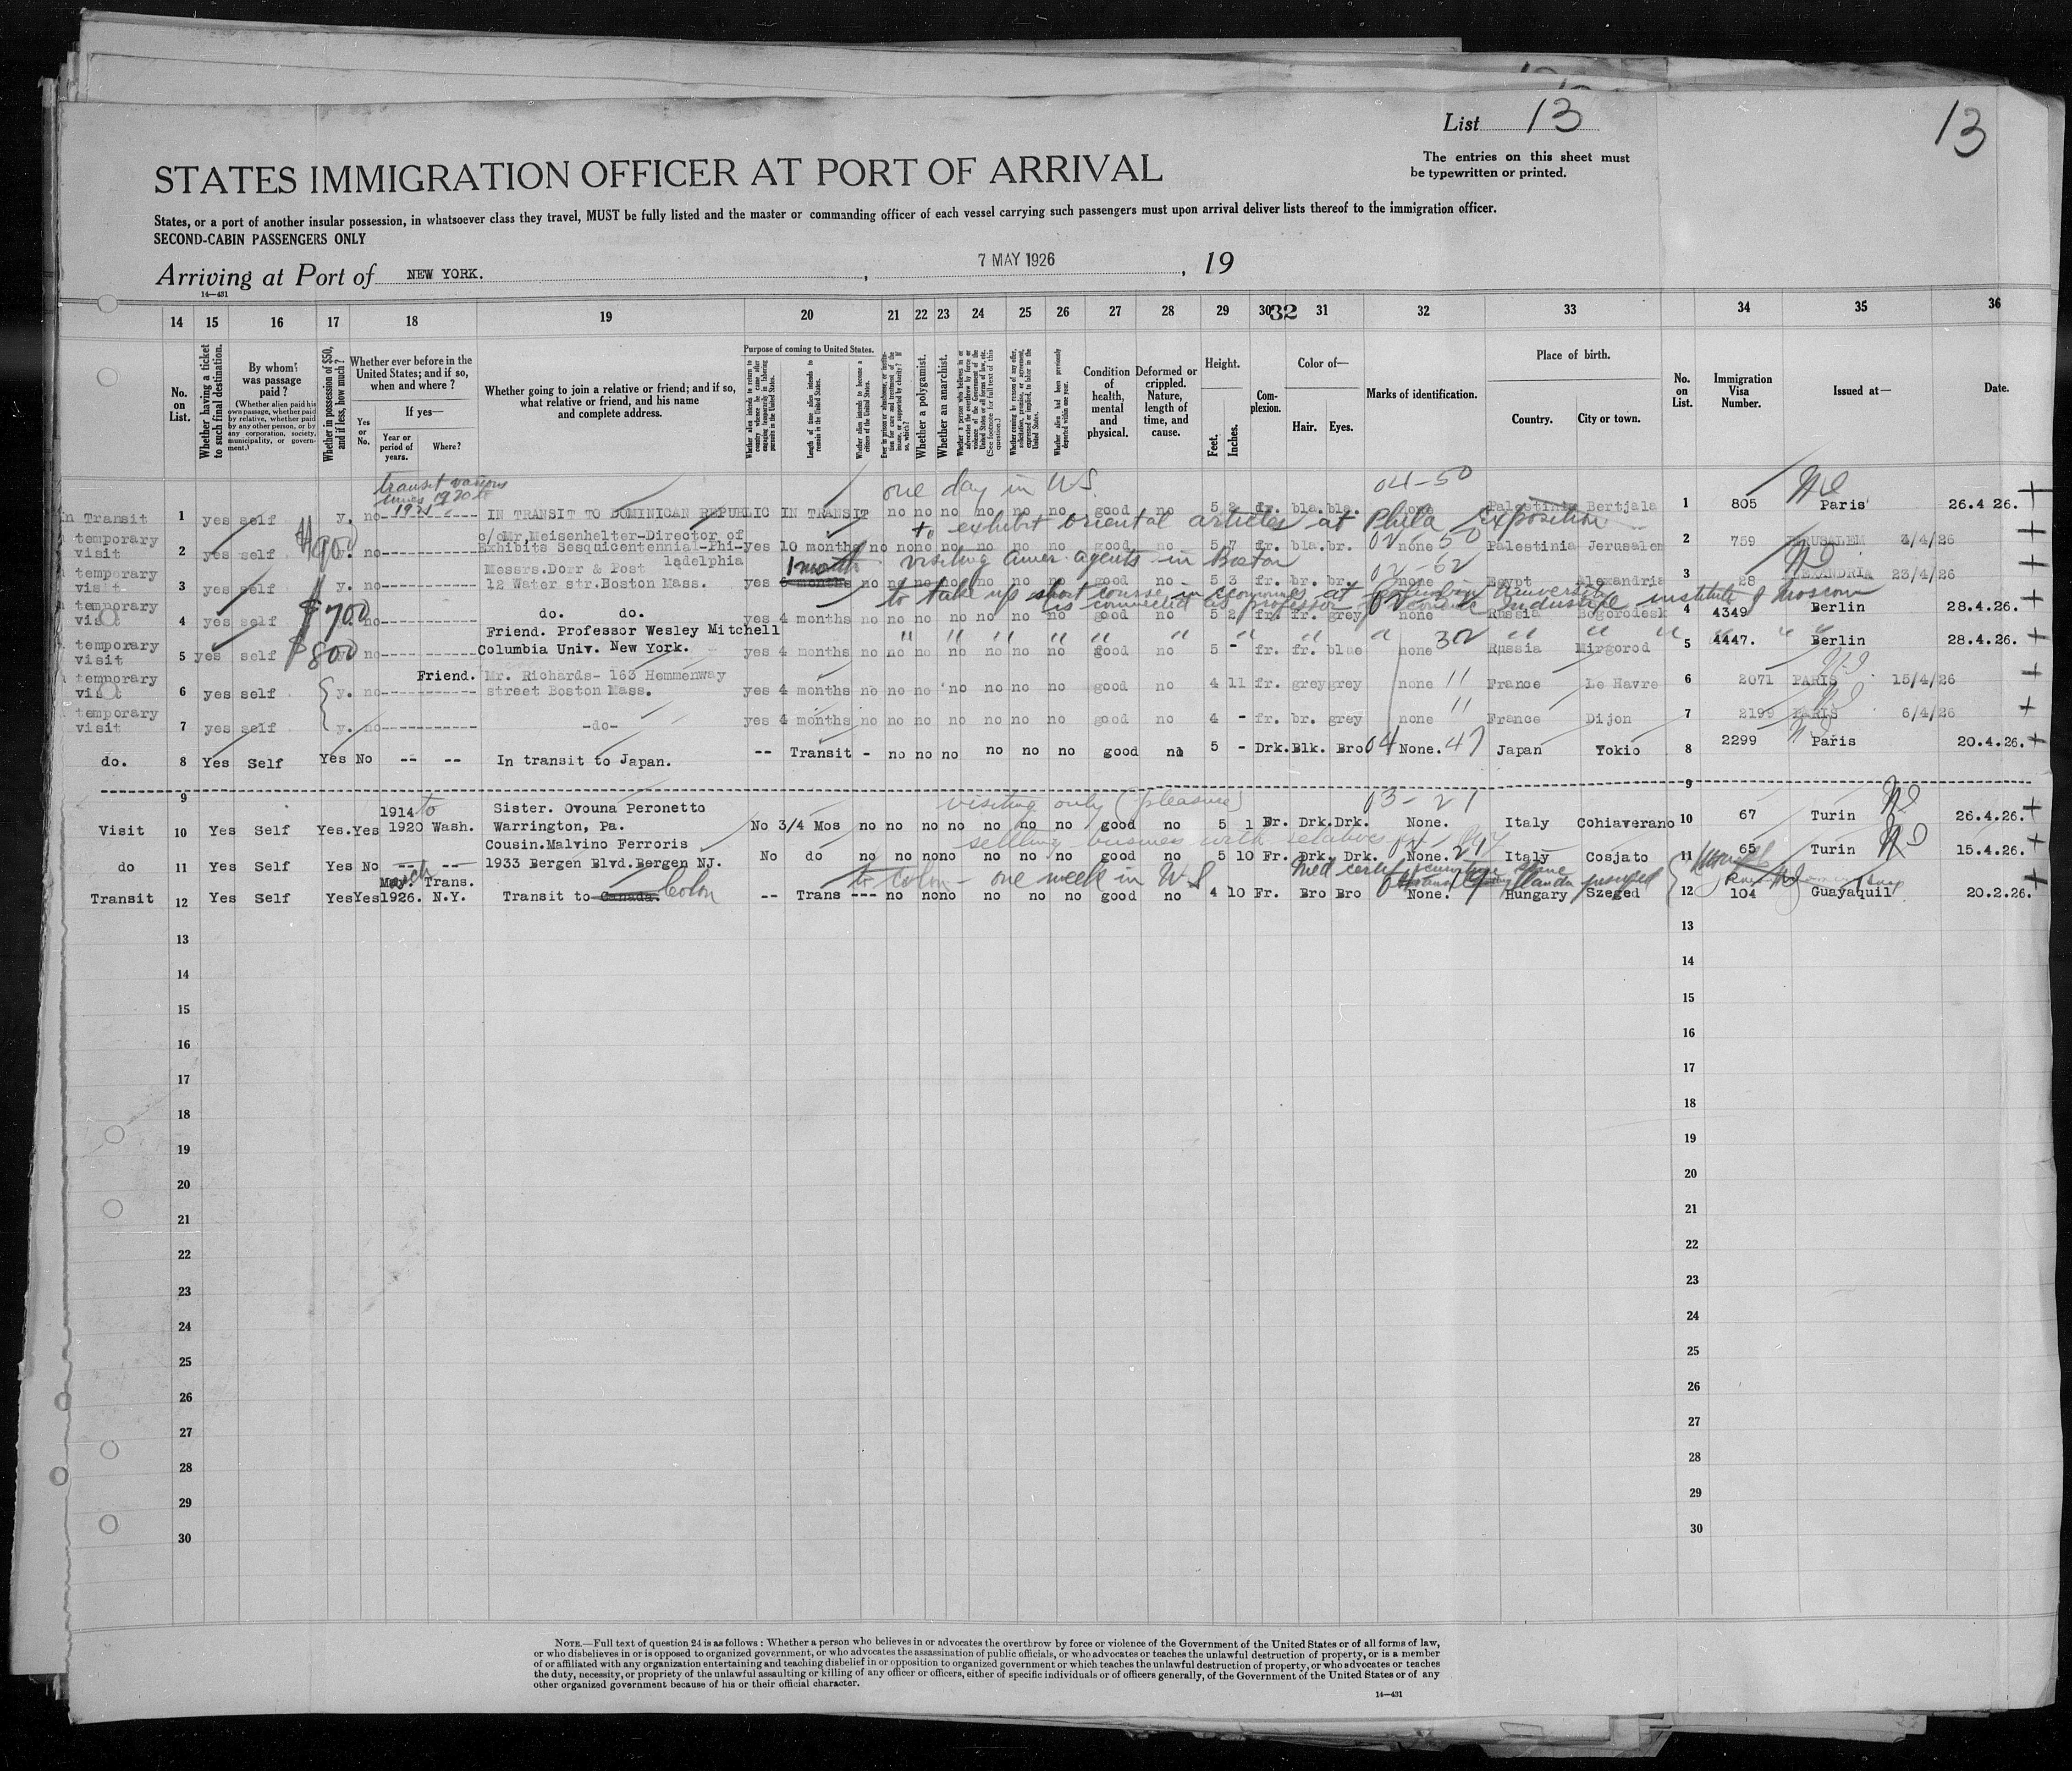 List 13
13
The entries on this sheet must
be typewritten or printed.
STATES IMMIGRATION OFFICER AT PORT OF ARRIVAL
States, or a port of another insular possession, in whatsoever class they travel, MUST be fully listed and the master or commanding officer of each vessel carrying such passengers must upon arrival deliver lists thereof to the immigration officer.
SECOND-CABIN PASSENGERS ONLY
Arriving at Port of NEW YORK. , 7 MAY 1926 , 19
14—431
14 15 16 17 18 19 20 21 22 23 24 25 26 27 28 29 30 32 31 32 33 34 35 36
No. on List.
Whether having a ticket to such final destination.
By whom was passage paid?
(Whether alien paid his own passage, whether paid by relative, whether paid by any other person, or by any corporation, society, municipality, or government.)
Whether in possession of $50, and if less, how much?
Whether ever before in the United States; and if so, when and where?
Yes or No.
If yes—
Year or period of years.
Where?
Whether going to join a relative or friend; and if so, what relative or friend, and his name and complete address.
Purpose of coming to United States.
Length of time alien intends to remain in the United States.
Whether alien intends to become a citizen of the United States.
Whether a polygamist.
Whether an anarchist.
Condition of health, mental and physical.
Deformed or crippled. Nature, length of time, and cause.
Height.
Feet.
Inches.
Complexion.
Color of—
Hair.
Eyes.
Marks of identification.
Place of birth.
Country.
City or town.
No. on List.
Immigration Visa Number.
Issued at—
Date.
transit various
times 1920 to
1921
one day in US.
04-50
in Transit 1 yes self y. no IN TRANSIT TO DOMINICAN REPUBLIC IN TRANSIT no no no no no no good no 5 2 dr. bla. bla. none Palestinia Bertjala 1 805 Paris 26.4 26.
to exhibit oriental articles at Phila Exposition
temporary visit 2 yes self $900 y. no c/o Mr Meisenhelter-Director of Exhibits Sesquicentennial-Philadelphia yes 10 months no no no no no no good no 5 7 fr. bla. br. 02 none 50 Palestinia Jerusalem 2 759 JERUSALEM 3/4/26
1 month visiting Amer agents in Boston
02-62
temporary visit 3 yes self y. no Messrs. Dorr & Post 12 Water str. Boston Mass. yes 6 months no no no no no no good no 5 3 fr. br. br. none Egypt Alexandria 3 28 ALEXANDRIA 23/4/26
to take up short course in economics at Columbia University
is connected as professor of economic Industrial institute of Moscow
temporary visit 4 yes self $700 no do. do. yes 4 months no no no no no no good no 5 2 fr. fr. grey none Russia Bogorodesk 4 4349 Berlin 28.4.26.
temporary visit 5 yes self $800 no Friend. Professor Wesley Mitchell Columbia Univ. New York. yes 4 months no no no no no no good no 5 - fr. fr. blue none 32 Russia Mirgorod 5 4447. Berlin 28.4.26.
temporary visit 6 yes self y. no Friend. Mr. Richards- 163 Hemmenway street Boston Mass. yes 4 months no no no no no no good no 4 11 fr. grey grey none " France Le Havre 6 2071 PARIS 15/4/26
temporary visit 7 yes self y. no -do- yes 4 months no no no no no no good no 4 - fr. br. grey none " France Dijon 7 2199 PARIS 6/4/26
do. 8 Yes Self Yes No -- -- In transit to Japan. -- Transit - no no no no no no good no 5 - Drk. Blk. Bro 04 None. 47 Japan Yokio 8 2299 Paris 20.4.26.
9 9
visiting only (pleasure) 03-21
Visit 10 Yes Self Yes. Yes 1914 to 1920 Wash. Sister. Ovouna Peronetto Warrington, Pa. No 3/4 Mos no no no no no no no good no 5 1 Fr. Drk. Drk. None. Italy Cohiaverano 10 67 Turin 26.4.26.
settling business with relatives
do 11 Yes Self Yes No -- -- Cousin. Malvino Ferroris 1933 Bergen Blvd. Bergen NJ. No do no no no no no no no good no 5 10 Fr. Drk. Drk. None. Italy Cosjato 11 65 Turin 15.4.26.
to Colon - one week in US
Med certif
Transit 12 Yes Self Yes Yes March 1926. Trans. N.Y. Transit to Canada. Colon -- Trans --- no no no no no no good no 4 10 Fr. Bro Bro None. Hungary Szeged 12 104 Guayaquil 20.2.26.
13 13
14 14
15 15
16 16
17 17
18 18
19 19
20 20
21 21
22 22
23 23
24 24
25 25
26 26
27 27
28 28
29 29
30 30
NOTE.—Full text of question 24 is as follows: Whether a person who believes in or advocates the overthrow by force or violence of the Government of the United States or of all forms of law,
or who disbelieves in or is opposed to organized government, or who advocates the assassination of public officials, or who advocates or teaches the unlawful destruction of property, or is a member
of or affiliated with any organization entertaining and teaching disbelief in or opposition to organized government or which teaches the unlawful destruction of property, or who advocates or teaches
the duty, necessity, or propriety of the unlawful assaulting or killing of any officer or officers, either of specific individuals or of officers generally, of the Government of the United States or of any
other organized government because of his or their official character.
14—431